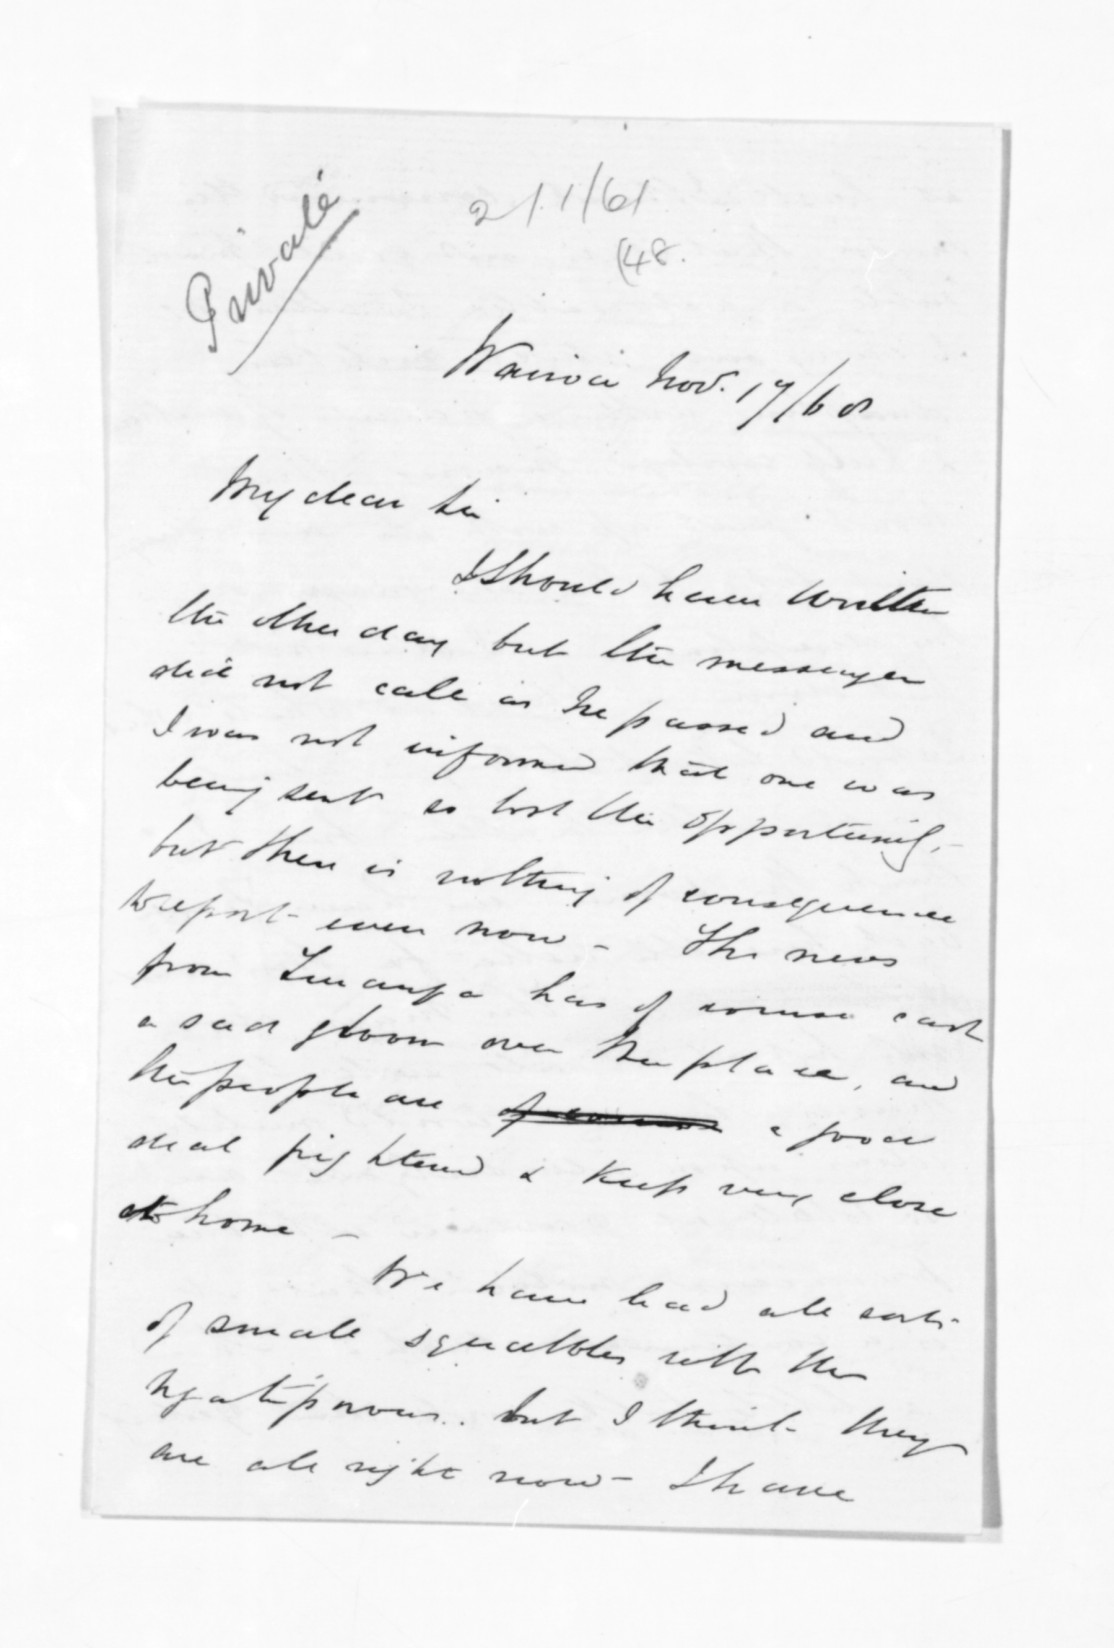 Private
2/1/61
(48.
Wairoa Nov. 17/68
My dear Sir
I should have written
the other day but the messenger
did not call as he passed and
I was not informed that one was
being sent so lost the opportunity,-
but there is nothing of consequence
to report even now - The news
from Turanga has of course cast
a sad gloom over the place, and
the people are of course a good
deal frightened & keep very close
at home -
We have had all sorts
of small squabbles with the
Ngatiporous.. but I think they
are all right now - I have